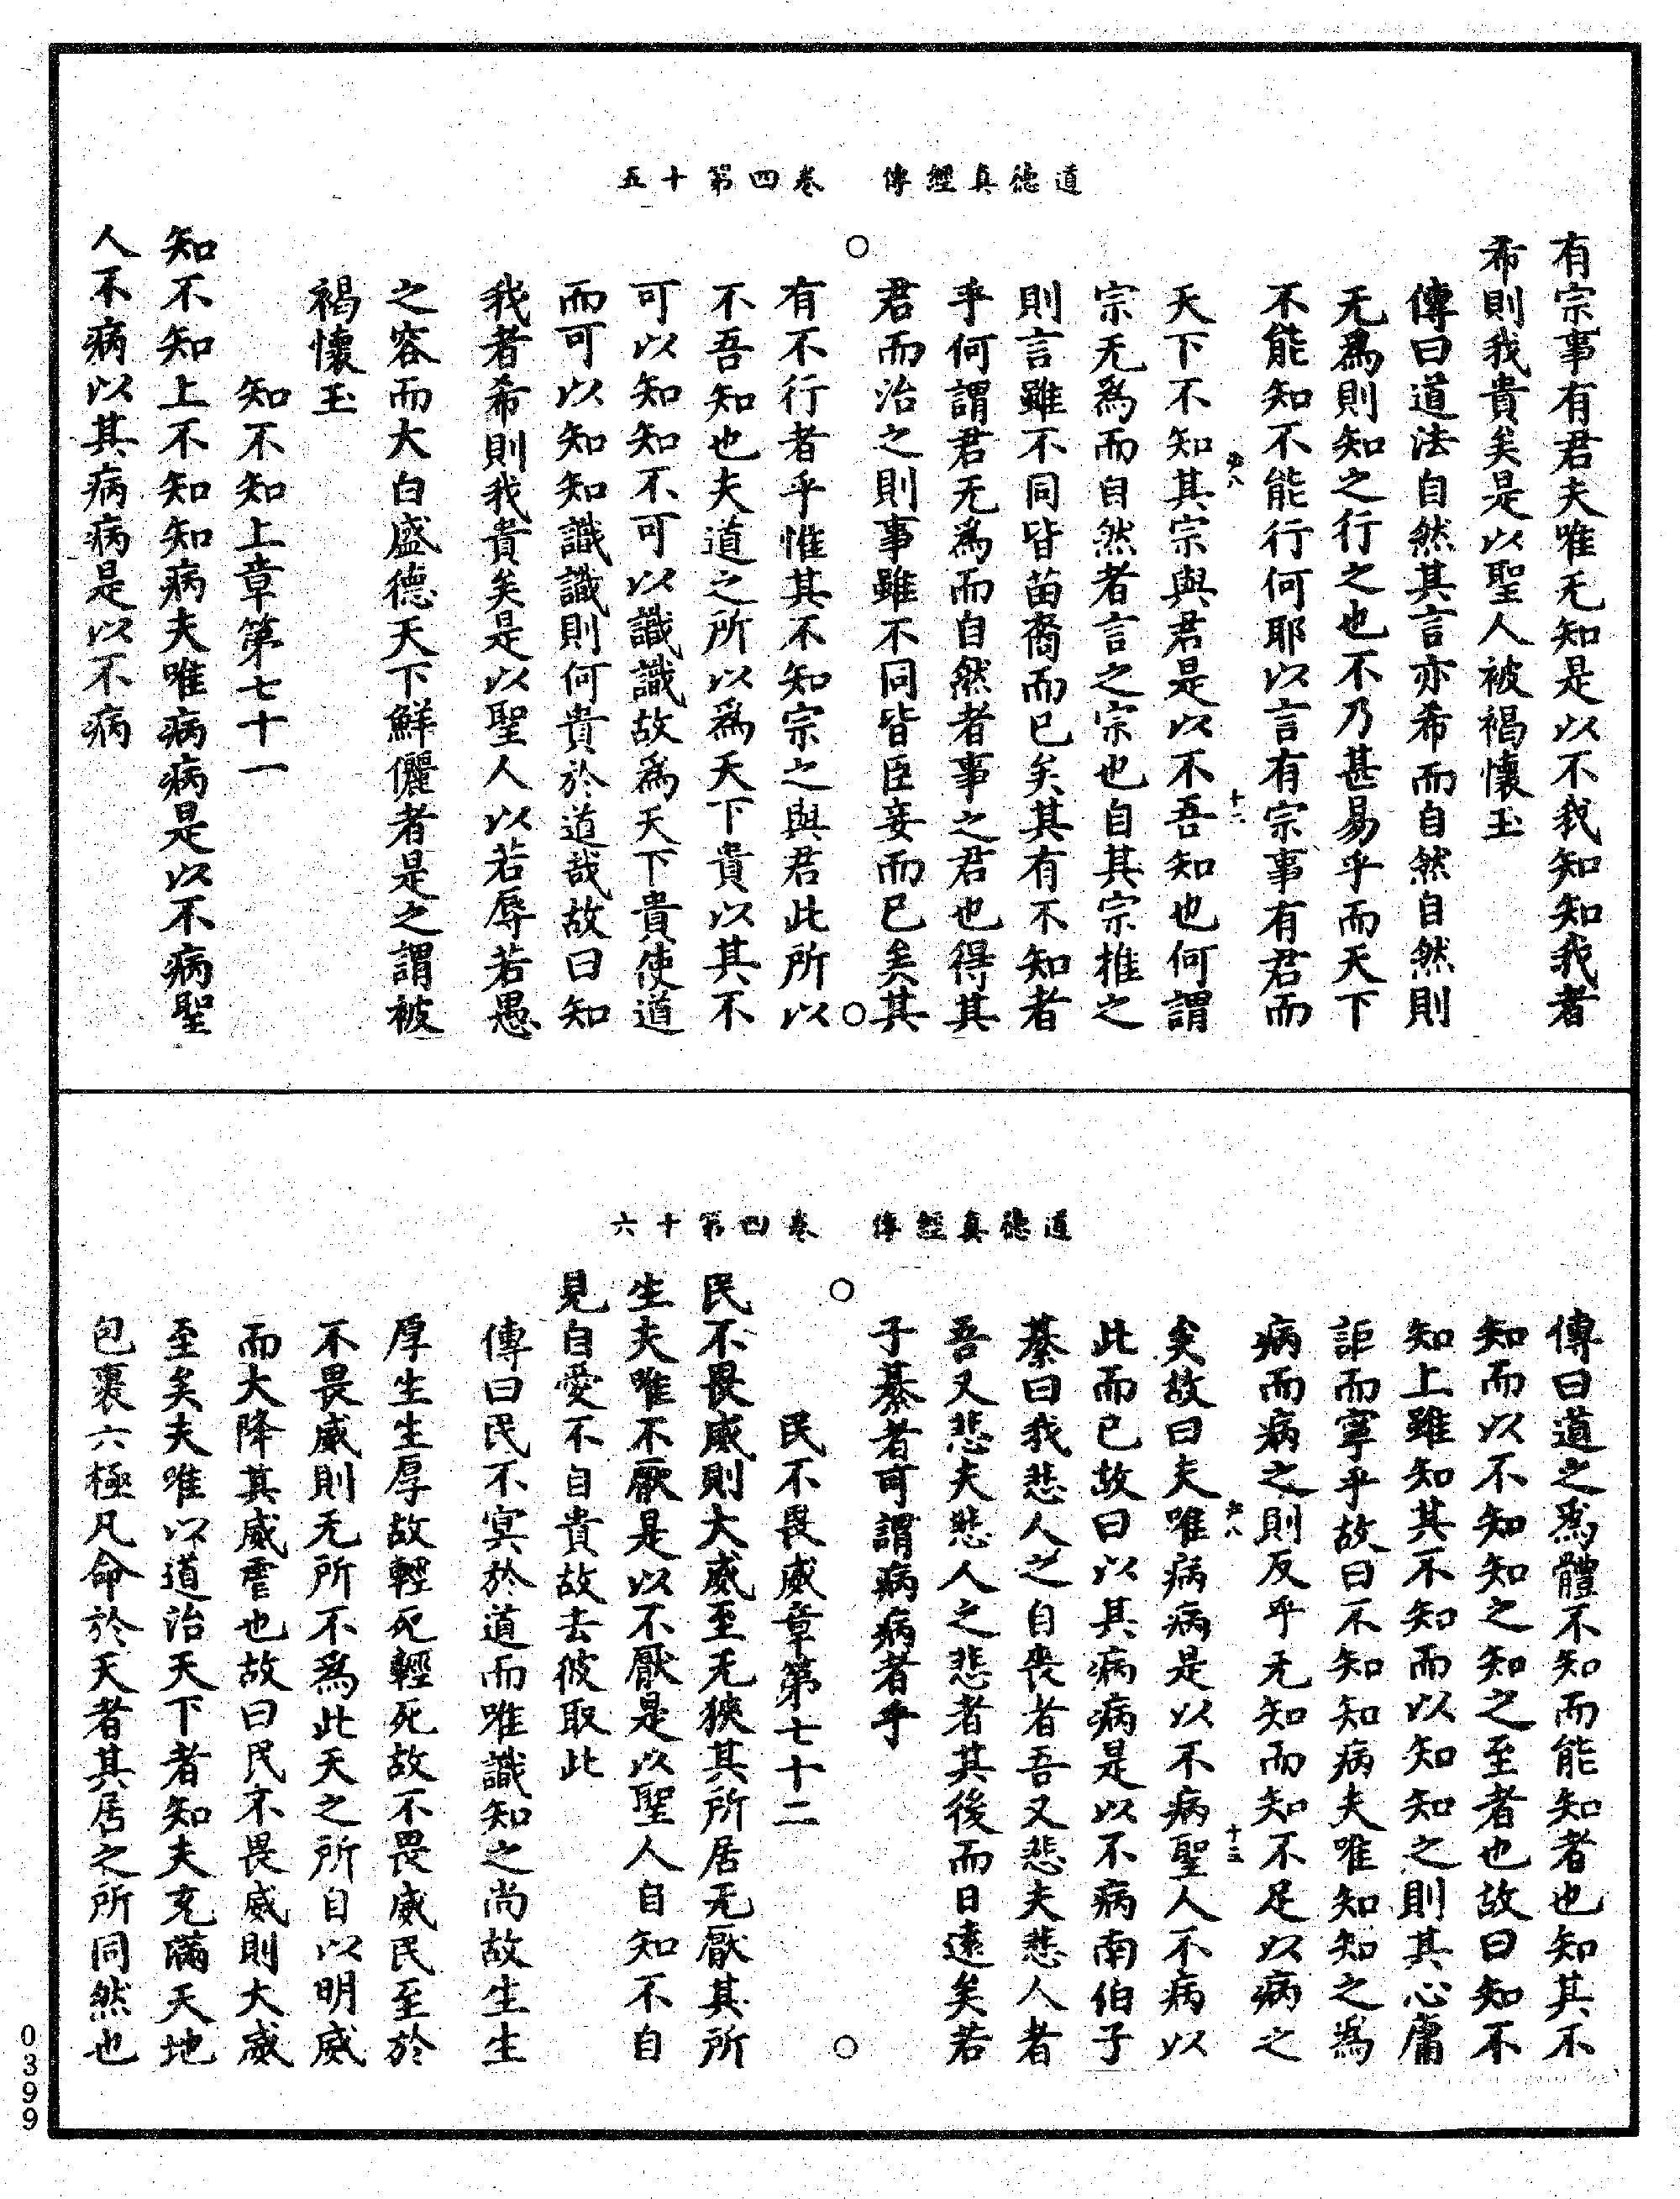 道德真經傳　卷四第十五
有宗事有君夫唯无知是以不我知知我者
希則我貴矣是以聖人被褐懷玉
傳曰道法自然其言亦希而自然自然則
无爲則知之行之也不乃甚易乎而天下
不能知不能行何耶以言有宗事有君而
十二
天下不知其宗與君是以不吾知也何謂
宗无爲而自然者言之宗也自其宗推之
則言雖不同皆苗裔而已矣其有不知者
乎何謂君无爲而自然者事之君也得其
君而治之則事雖不同皆臣妾而已矣其
有不行者乎惟其不知宗之與君此所以
不吾知也夫道之所以爲天下貴以其不
可以知知不可以識識故爲天下貴使道
而可以知知識識則何貴於道哉故曰知
我者希則我貴矣是以聖人以若辱若愚
之容而大白盛德天下鮮儷者是之謂被
褐懷玉
知不知上章第七十一
知不知上不知知病夫唯病病是以不病聖
人不病以其病病是以不病
道德真經傳　卷四第十六
傳曰道之爲體不知而能知者也知其不
知而以不知知之知之至者也故曰知不
知上雖知其不知而以知知之則其心庸
詎而寧乎故曰不知知病夫唯知知之爲
病而病之則反乎无知而知不足以病之
十三
矣故曰夫唯病病是以不病聖人不病以
此而已故曰以其病病是以不病南伯子
綦曰我悲人之自喪者吾又悲夫悲人者
吾又悲夫悲人之悲者其後而日遠矣若
子綦者可謂病病者乎
民不畏威章第七十二
民不畏威則大威至无狹其所居无厭其所
生夫唯不厭是以不厭是以聖人自知不自
見自愛不自貴故去彼取此
傳曰民不冥於道而唯識知之尚故生生
厚生生厚故輕死輕死故不畏威民至於
不畏威則无所不爲此天之所自以明威
而大降其威虐也故曰民不畏威則大威
至矣夫唯以道治天下者知夫充滿天地
包裹六極凡命於天者其居之所同然也
0399